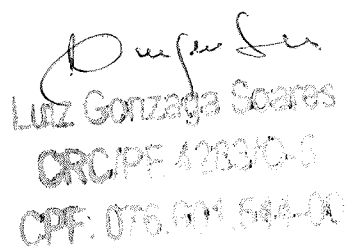 Luiz Gonzaga Soares
CRC/PE 4283/O-5
CPF: 076.601.544-00